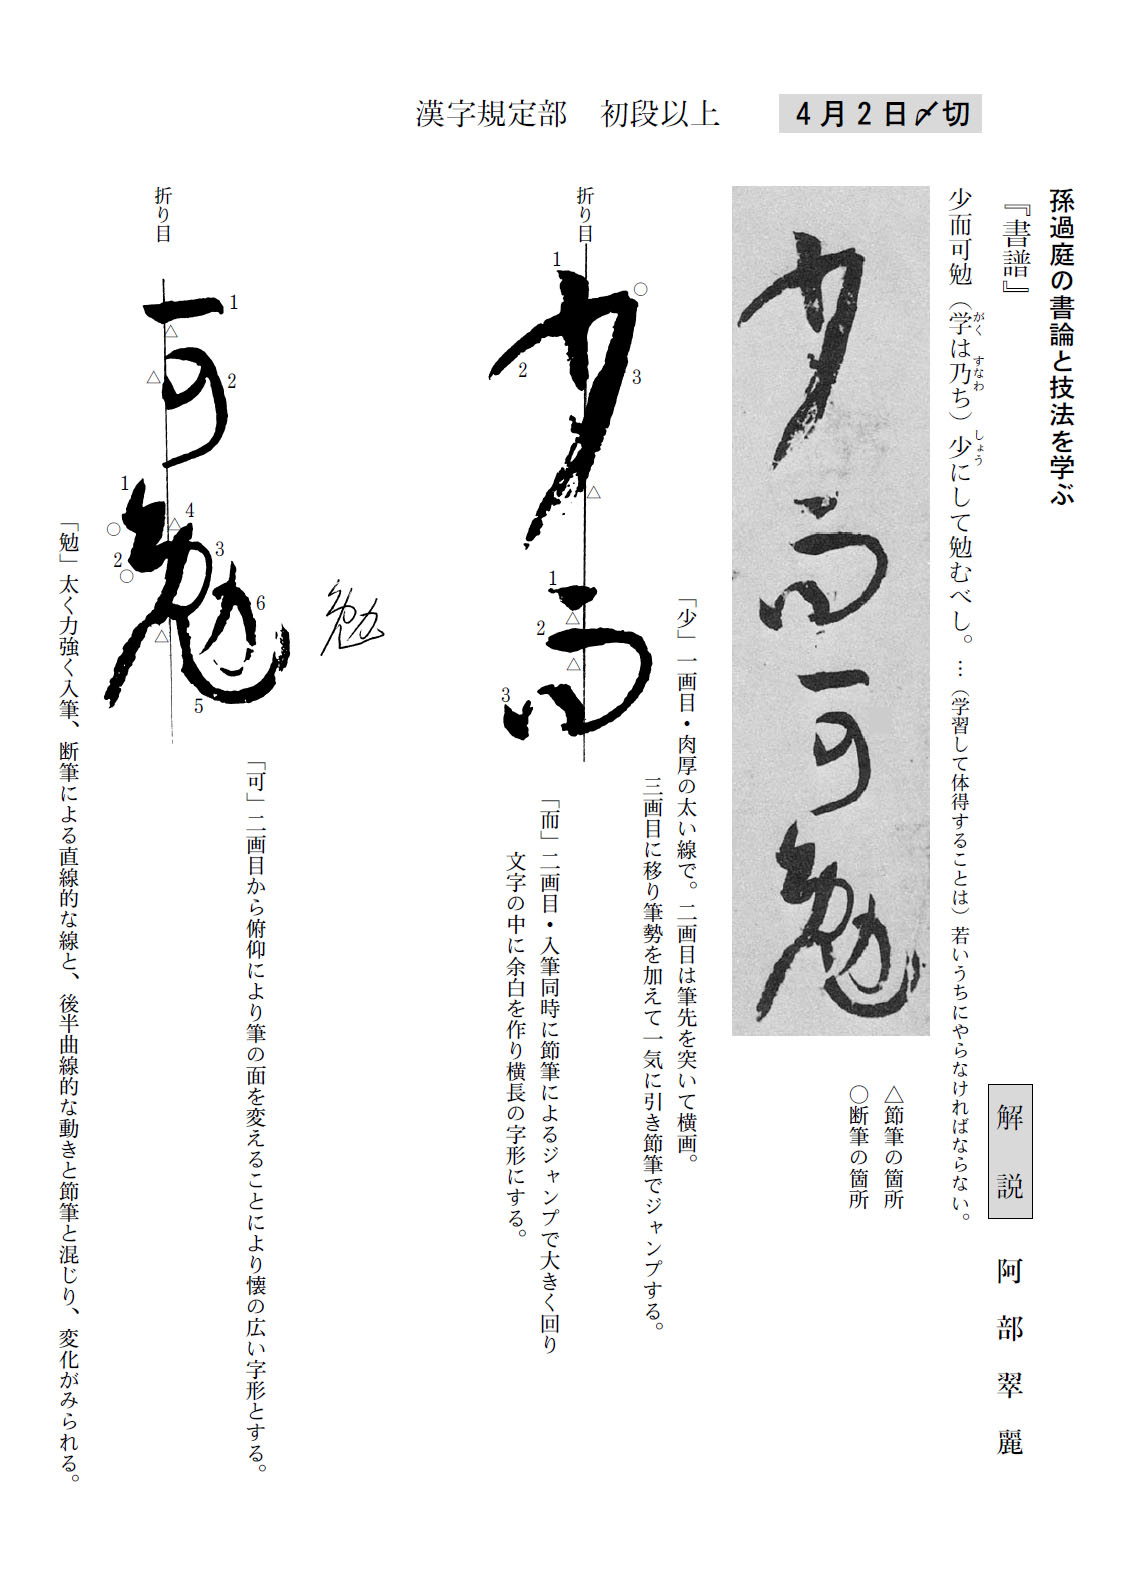 漢字規定部　初段以上
4月2日〆切
孫過庭の書論と技法を学ぶ
『書譜』
解説　阿部翠麗
少而可勉（学は乃ち）少にして勉むべし。…（学習して体得することは）若いうちにやらなければならない。
がく
すなわ
しょう
△節筆の箇所
○断筆の箇所
少而可勉
「少」一画目・肉厚の太い線で。二画目は筆先を突いて横画。
三画目に移り筆勢を加えて一気に引き節筆でジャンプする。
折り目
少而
1
2
3
○
△
1
2
3
△
△
「而」二画目・入筆同時に節筆によるジャンプで大きく回り
文字の中に余白を作り横長の字形にする。
勉
「可」二画目から俯仰により筆の面を変えることにより懐の広い字形とする。
折り目
可勉
1
2
△
△
1
2
3
4
5
6
○
○
△
△
「勉」太く力強く入筆、断筆による直線的な線と、後半曲線的な動きと節筆と混じり、変化がみられる。